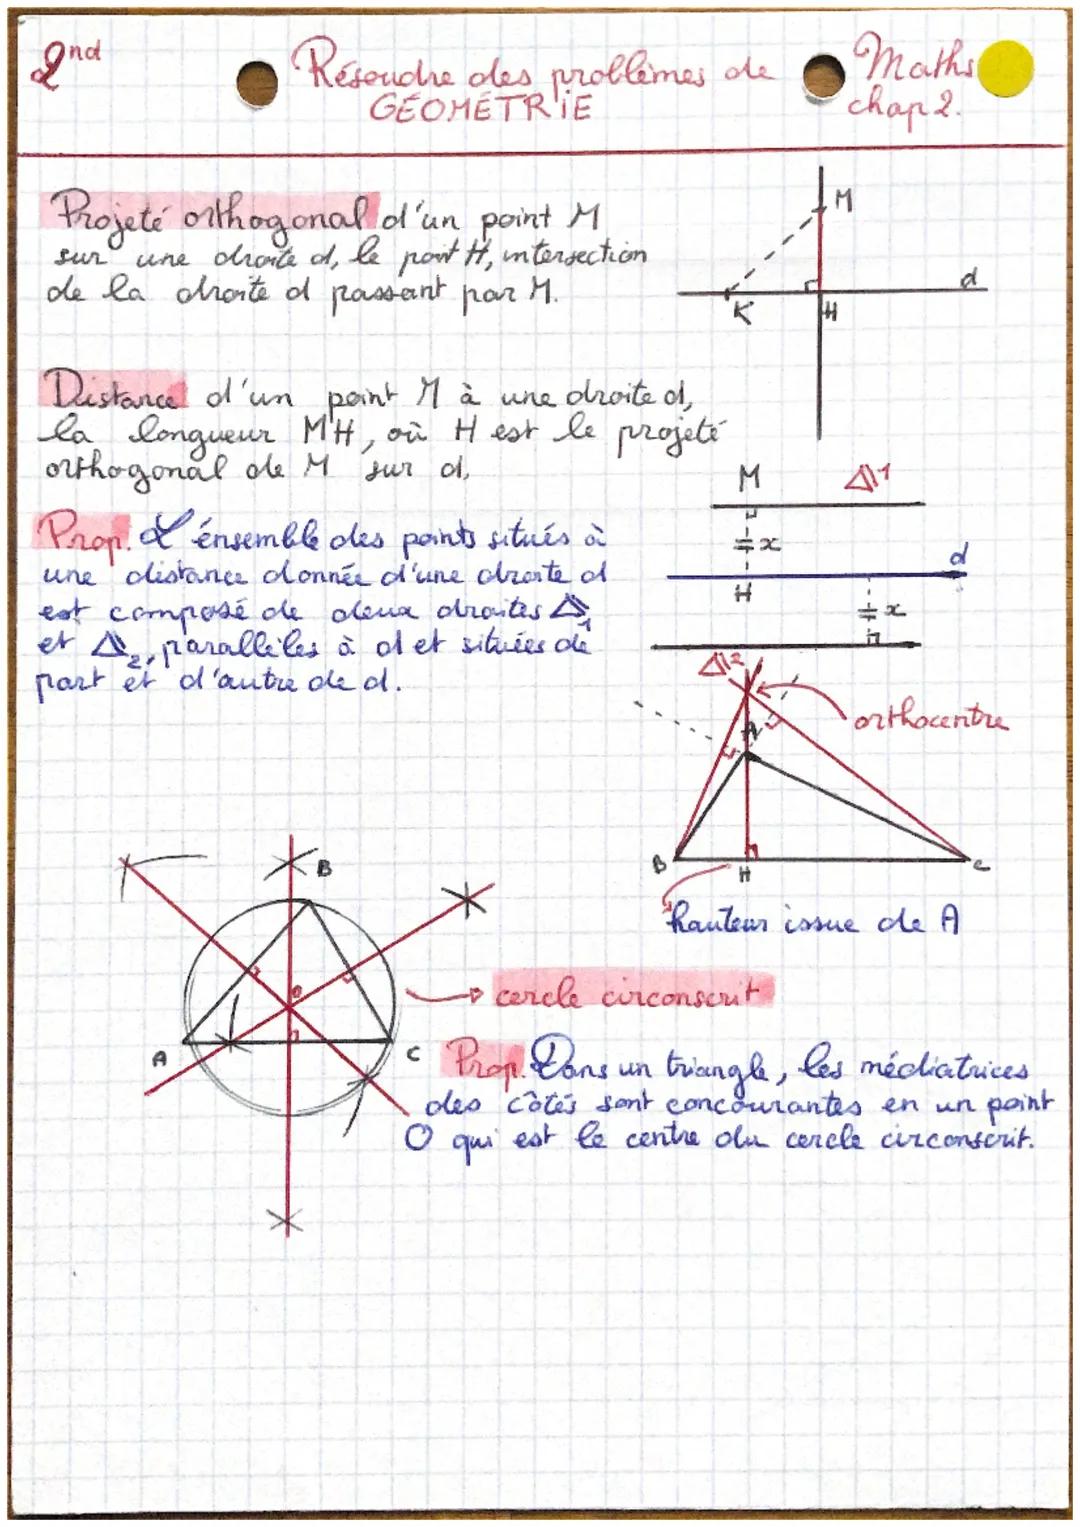 2nd
Résoudre des problèmes de
GÉOMÉTRIE
Maths
chap 2.
Projeté orthogonal d'un point M
sur une droite d, le point H, intersection
de la droite d passant par M.
M
d
K
H
Distance d'un point M à une droite d,
la longueur MH, où H est le projeté
orthogonal de M sur d.
M
Δ1
x
d
H
x
Δ2
Prop. L'énsemble des points situés à
une distance donnée d'une droite d
est composé de deux droites Δ1
et Δ2, parallèles à d et situées de
part et d'autre de d.
orthocentre
A
B
H
C
hauteur issue de A
B
O
A
C
cercle circonscrit
Prop. Dans un triangle, les médiatrices
des côtés sont concourantes en un point
O qui est le centre du cercle circonscrit.